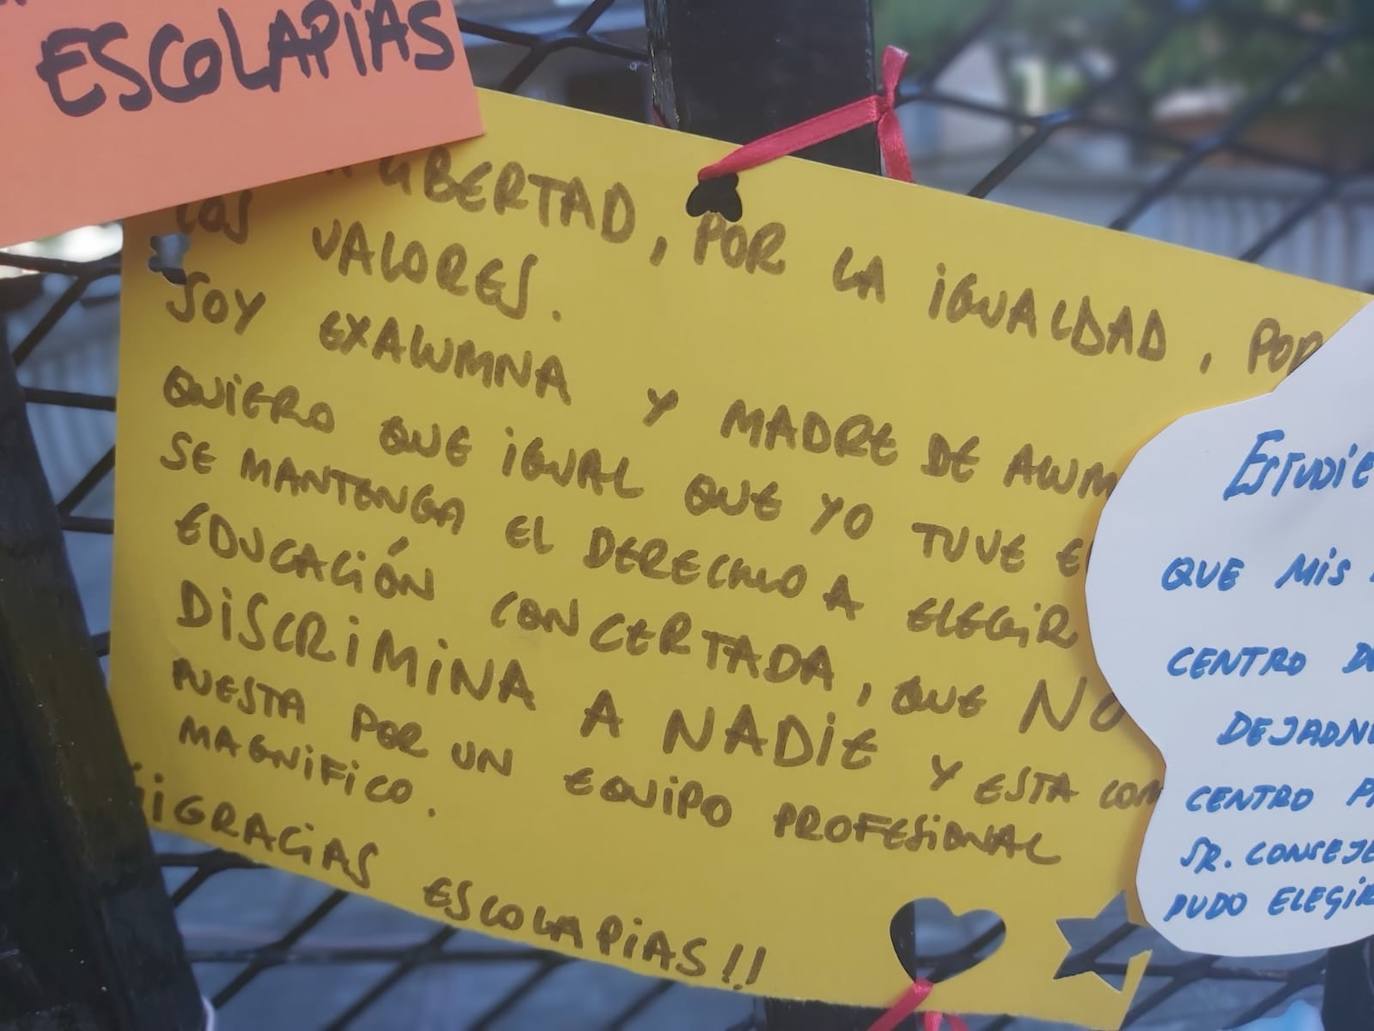 ESCOLAPIAS
LIBERTAD, POR LA IGUALDAD, POR
LOS VALORES.
SOY EXALUMNA Y MADRE DE ALUM
QUIERO QUE IGUAL QUE YO TUVE E
SE MANTENGA EL DERECHO A ELEGIR
EDUCACIÓN CONCERTADA, QUE NO
DISCRIMINA A NADIE Y ESTA COM
PUESTA POR UN EQUIPO PROFESIONAL
MAGNIFICO.
¡¡GRACIAS ESCOLAPIAS!!
ESTUDIE
QUE MIS
CENTRO DE
DEJADN
CENTRO P
SR. CONSEJE
PUDO ELEGIR